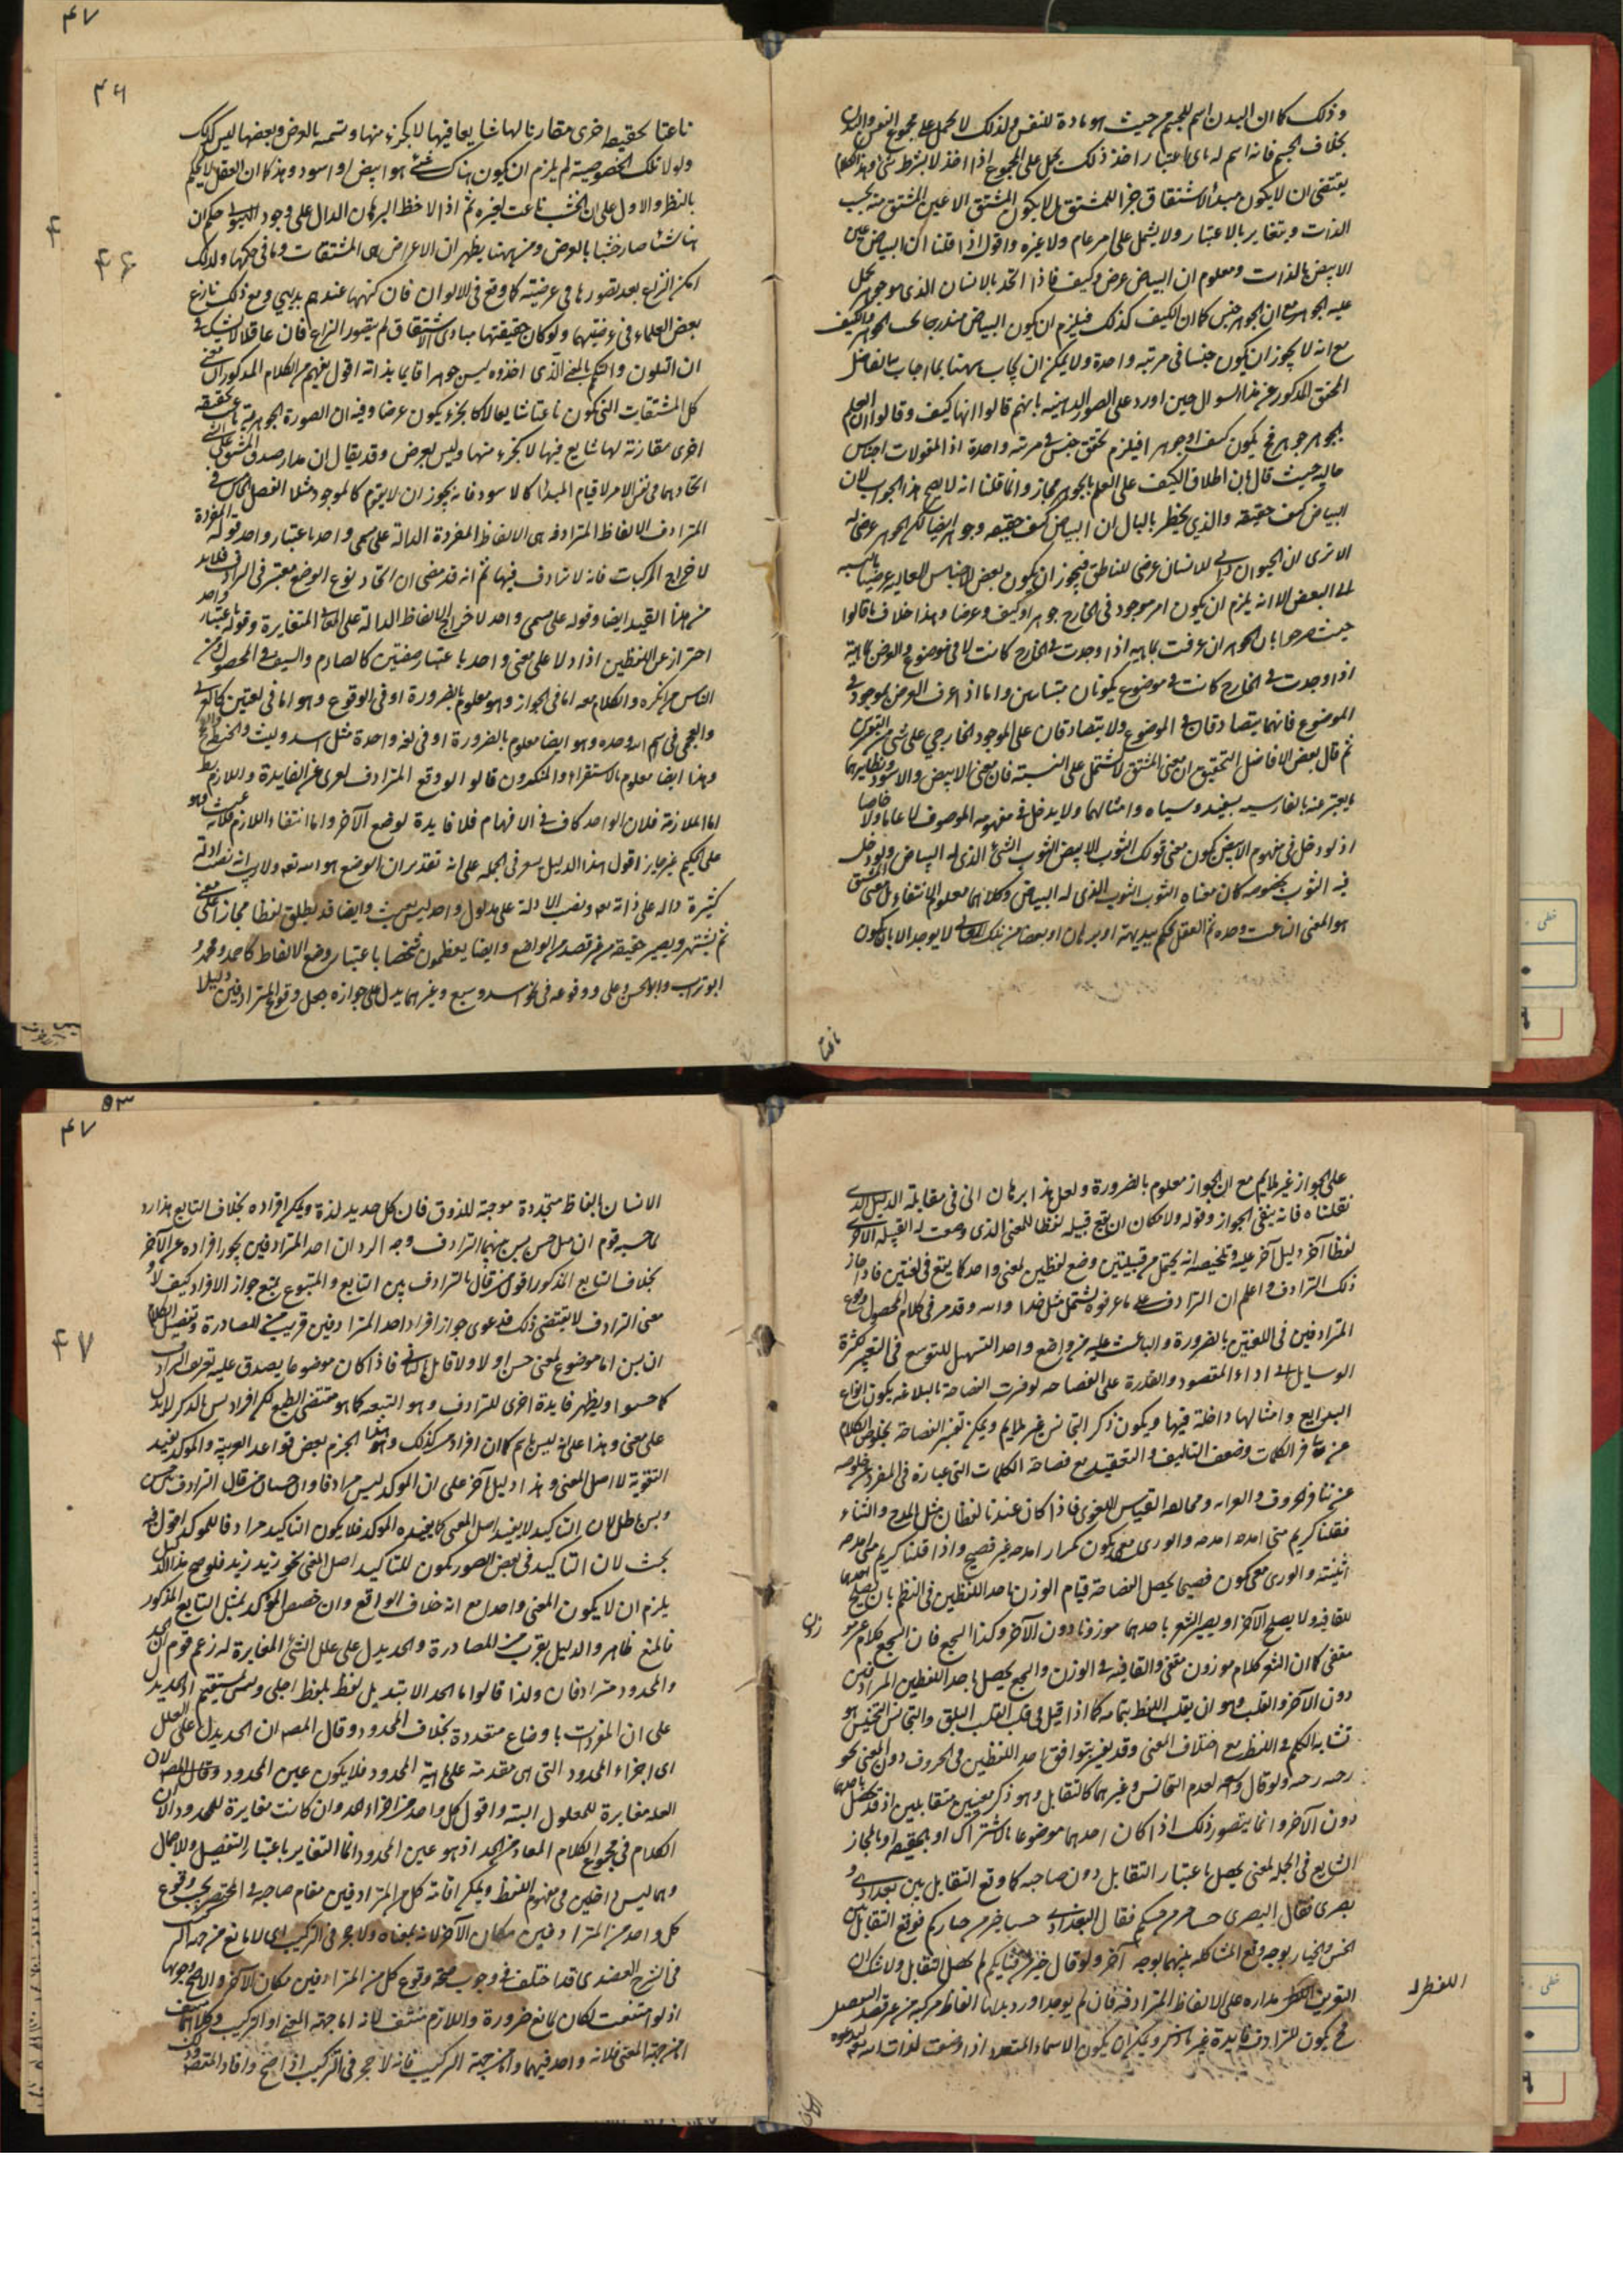 وذلك كما ان البدن اسم للجسم من حيث هو مادة للنفس ولذلك لا يحمل على مجموع النفس والبدن
بخلاف الجسم فانه اسم له باى اعتبار اخذ ذلك يحمل على المجموع اذا اخذ لا بشرط شئ وهذا الكلام
يقتضى ان لا يكون مبدأ الاشتقاق جزأ للمشتق بل لا يكون المشتق الا عين المشتق منه بحسب
الذات ويتغاير بالاعتبار ولا يشمل على امر عام ولا غيره واقول اذا قلنا ان البياض عين
الابيض بالذات ومعلوم ان البياض عرض وكيف فاذا اتحد بالانسان الذى هو جوهر يحمل
عليه الجوهر مع ان الجوهر جنس كما ان الكيف كذلك فيلزم ان يكون البياض مندرجا تحت الجوهر والكيف
مع انه لا يجوز ان يكون جنسا فى مرتبه واحدة ولا يمكن ان يجاب ههنا بما اجاب بالفاضل
المحقق المذكور عن هذا السوال حين اورد على الصور الذهنيه بانهم قالوا انها كيف وقالوا ان العلم
بالجوهر جوهر فح يكون كيفا وجوهرا فيلزم تحقق جنس فى مرتبه واحدة اذ المقولات اجناس
عاليه حيث قال بان اطلاق الكيف على العلم بالجوهر مجاز وانما قلنا انه لا يصح هذا الجواب لان
البياض كيف حقيقه والذى يخطر بالبال ان البياض كيف حقيقه وجوهر ايضا لكن الجوهر عرضى له
الا ترى ان الحيوان ذاتى للانسان عرضى للناطق فيجوز ان يكون بعض الاجناس العاليه عرضيا بالنسبه
الى البعض الا انه يلزم ان يكون امر موجود فى الخارج جوهرا وكيف وعرضا وهذا خلاف ما قالوا
حيث صرحوا بان الجوهر ان عرفت بماهيه اذا وجدت فى الخارج كانت لا فى موضوع والعرض بماهية
اذا وجدت فى الخارج كانت فى موضوع يكونان متباينين واما اذا عرف العرض بالموجود فى
الموضوع فانهما يتصادقان فى الموضوع ولا يتصادقان على الموجود الخارجى على شئ من التعريفين
ثم قال بعض الافاضل التحقيق ان معنى المشتق لا يشتمل على النسبة فان معنى الابيض والاسود ونظايرهما
ما يعبر عنه بالفارسيه بسفيد وسياه وامثالهما ولا يدخل فى مفهومه الموصوف لا عاما ولا خاصا
اذ لو دخل فى مفهوم الابيض كون معنى قولك الثوب الابيض الثوب الشئ الذى له البياض ولو دخل
فيه الثوب بخصوصه كان معناه الثوب الثوب الذى له البياض وكلاهما معلوم الانتفاء بل معنى المشتق
هو المعنى الناعت وحده ثم العقل يحكم بديهة او ببرهان ان بعضا من تلك المعانى لا يوجد الا بان يكون
ناعتا
۴۷
۴۶
ناعتا لحقيقه اخرى مقارنا لها شايعا فيها لا بجزء منها وتسمه بالعرض وبعضها ليس كذلك
ولو لا تلك الخصوصية لم يلزم ان يكون هناك شئ هو ابيض او اسود وهذا كما ان العقل لا يحكم
بالنظر والاول على ان الخشب ناعت لغيره ثم اذا لاحظ البرهان الدال على وجود الهيولى حكم ان
هنا شئا صار خشبا بالعرض ومن ههنا يظهر ان الاعراض هى المشتقات وما فى حكمها ولذلك
امكن النزاع بعد تصورها فى عرضيته كما وقع فى الالوان فان كنهها عندهم بديهي ومع ذلك نازع
بعض العلماء فى عرضيتها ولو كان حقيقتها مبادى الاشتقاق لم يتصور النزاع فان عاقلا لا يشك فى
ان التلون والتكم بالمعنى الذى اخذوه ليس جوهرا قايما بذاته اقول يفهم من الكلام المذكور ان معنى
كل المشتقات التى تكون ناعتا شايعا لا كالجزء يكون عرضا وفيه ان الصورة الجوهرية ناعت لحقيقه
اخرى مقارنة لها شايع فيها لا بجزء منها وليس بعرض وقد يقال ان مدار صدق المشتق على شئ
اتحادهما فى نفس الامر لا قيام المبدأ كالاسود فانه يجوز ان لا يقوم كالموجود مثلا الفصل الخامس فى
المترادف الالفاظ المترادفه هى الالفاظ المفردة الدالة على مسمى واحد باعتبار واحد قوله المفردة
لاخراج المركبات فانه لا ترادف فيها ثم انه قد مضى ان اتحاد نوع الوضع معتبر فى الترادف فلا بد
من هذا القيد ايضا وقوله على مسمى واحد لاخراج الالفاظ الدالة على المعانى المتغايرة وقوله باعتبار واحد
احتراز عن اللفظين اذا دلا على معنى واحد باعتبار صفتين كالصارم والسيف فى المحصول ومن
الناس من انكره والكلام معه اما فى الجواز وهو معلوم بالضرورة او فى الوقوع وهو اما فى لغتين كالعربى
والعجمى فى اسم الله وحده وهو ايضا معلوم بالضرورة او فى لغه واحدة مثل اسد وليث والحنطه والقمح
وهذا ايضا معلوم بالاستقراء والمنكرون قالوا لو وقع المترادف لعرى عن الفايدة واللازم بط
اما الملازمة فلان الواحد كاف فى الافهام فلا فايدة لوضع الآخر واما انتفاء اللازم فلانه عبث وهو
على الحكيم غير جايز اقول هذا الدليل يعرف فى الجمله على انه تقدير ان الوضع هو الله تعه ولا ريب انه نصب ادلة
كثيرة داله على ذاته تعه ونصب الادلة على مدلول واحد ليس بعبث وايضا قد يطلق لفظا مجازا على معنى
ثم يشتهر ويصير حقيقه من غير قصد من الواضع وايضا يعظمون شخصا باعتبار وضع الالفاظ كاحمد ومحمد و
ابو تراب وابو الحسن وعلى ووقوعه فى نحو اسد وسبع وغيرهما يدل على جوازه جعل وقوع المترادفين دليلا
على الجواز غير ملايم مع ان الجواز معلوم بالضرورة ولعل هذا برهان انى فى مقابلة الدليل الذى
نقلناه فانه ينفى الجواز وقوله ولا مكان ان يقع قبيله لفظا للمعنى الذى وضعت له القبيله الاخرى
لفظا آخر دليل آخر عليه وتلخيصه انه يحتمل من قبيلتين وضع لفظين لمعنى واحد كما يقع فى لغتين فاذا جاز
ذلك الترادف واعلم ان الترادف على ما عرفوه يشتمل مثل خدا والله وقد مر فى كلام المحصول وقوع
المترادفين فى اللغتين بالضرورة والباعث عليه من واضع واحد التسهيل للتوسع فى التعبير كثرة
الوسايل الى اداء المقصود والقدرة على الفصاحه لو فسرت الفصاحة بالبلاغه يكون انواع
البدايع وامثالها داخلة فيها ويكون ذكر التجانس غير ملايم ويمكن تفسير الفصاحة بخلوص الكلام
عن تنافر الكلمات وضعف التاليف والتعقيد مع فصاحة الكلمات التى عبارة فى المفرد عن خلوصه
عن تنافر الحروف والغرابه ومخالفه القياس اللغوى فاذا كان عندنا لفظان مثل المدح والثناء
فقلنا كريم متى امدحه امدحه والورى معى يكون تكرار امدحه غير فصيح واذا قلنا كريم متى امدحه
اثنيته والورى معى يكون فصيحا يحصل الفصاحة قيام الوزن باحد اللفظين فى النظم بان يصلح احدهما
للقافيه ولا يصلح الآخر او يصير الشعر باحدهما موزونا دون الآخر وكذا السجع فان السجع كلام غير مو
زون
مقفى كما ان الشعر كلام موزون مقفى والقافيه فى الوزن والسجع يحصل باحد اللفظين المترادفين
دون الآخر والقلب وهو ان يقلب اللفظ بتمامه كما اذا قيل فى قلب القلب البلق والتجانس التجنيس هو
تشابه الكلم فى اللفظ مع اختلاف المعنى وقد يفسر بتوافق احد اللفظين فى الحروف دون المعنى نحو
رحبه رحبه ولو قال وسعه لعدم التجانس وغيرهما كالتقابل وهو ذكر معنيين متقابلين اذ قد يحصل باحدهما
دون الآخر وانما يتصور ذلك اذا كان احدهما موضوعا بالاشتراك او بالحقيقه او بالمجاز
الشايع فى الجمله لمعنى يحصل باعتبار التقابل دون صاحبه كما وقع التقابل بين بغدادى و
بصرى فقال البصرى حسنا خير من حسكم فقال البغدادى خسنا خير من خياركم فوقع التقابل بين
الخس والخيار بوجه وقع المشاكله بينهما بوجه آخر ولو قال خير من قثايكم لم يحصل التقابل ولا شك ان
التعريف اللفظى مداره على الالفاظ المترادفه فان لم يوجد اورد بدلها الفاظ مركبه من غير قصد التفصيل
اللفظى
فح يكون للترادف فايدة غير ما ذكر ويمكن ان يكون الاسماء المتعدده اذا وضعت لذات الله تعه ليدعوه
الانسان
۵۳
۴۷
۴۷
الانسان بالفاظ متجددة موجبة للذوق فان كل جديد لذة ويمكن افراده بخلاف التابع هذا رد
لما حسبه قوم ان مثل حسن بسن بينهما الترادف وجه الرد ان احد المترادفين يجوز افراده عن الآخر
بخلاف التابع المذكور اقول من قال بالترادف بين التابع والمتبوع يمنع جواز الافراد كيف لا و
معنى الترادف لا يقتضى ذلك فدعوى جواز افراد احد المترادفين قريب من المصادرة وتفصيل الكلام
ان بسن اما موضوع لمعنى حسن اولا ولا قائل بالثانى فاذا كان موضوعا يصدق عليه تعريف المرادف
كما حسبوا ويظهر فايدة اخرى للترادف وهو التبعه كما هو مقتضى الطبع لكن افراد بسن بالذكر لا يدل
على معنى وهذا على انه ليس باسم كما ان افراد من كذلك وهو ايضا الجزم بعض قواعد العربية والموكد يفيد
التقوية لا اصل المعنى وهذا دليل آخر على ان الموكد ليس مرادفا وان حسبان من قال الترادف بين حسن
وبسن باطل لان التاكيد لا يفيد اصل المعنى كما يفيده الموكد فلا يكون التاكيد مرادفا للموكد اقول فيه
بحث لان التاكيد فى بعض الصور يكون للتاكيد اصل المعنى نحو زيد زيد فلو صح هذا الدليل
يلزم ان لا يكون المعنى واحدا مع انه خلاف الواقع وان خصص الموكد بمثل التابع المذكور
فالمنع ظاهر والدليل يقرب من المصادرة والحد يدل على علل الشئ المغايرة له زعم قوم ان الحد
والمحدود مترادفان ولذا قالوا ما الحد الا تبديل لفظ بلفظ اجلى وليس بمستقيم اذ الحد يدل
على ان المفردات باوضاع متعددة بخلاف المحدود وقال المصه ان الحد يدل على العلل
اى اجزاء المحدود التى هى مقدمة على ماهية المحدود فلا يكون عين المحدود وقال المصه لان
العله مغايرة للمعلول البته واقول كل واحد من اجزاء الحد وان كانت مغايرة للمحدود الا ان
الكلام فى مجموع الكلام المعاد من الحد اذ هو عين المحدود انما التغاير باعتبار التفصيل والاجمال
وهما ليس داخلين فى مفهوم اللفظ ويمكن اقامة كل من المترادفين مقام صاحبه فى المختصر يجب وقوع
كل واحد من المترادفين مكان الآخر لانه بمعناه ولا حجر فى التركيب اى لا مانع من جهة التركيب
فى الشرح العضدى قد اختلف فى وجوب صحة وقوع كل من المترادفين مكان الآخر والاصح وجوبها
اذ لو امتنعت لكان لمانع ضرورة واللازم منتف لانه اما جهة المعنى او التركيب وكلاهما منتف
اما من جهة المعنى فلانه واحد فيهما واما من جهة التركيب فانه لا حجر فى التركيب اذا صح وافاد المقصود